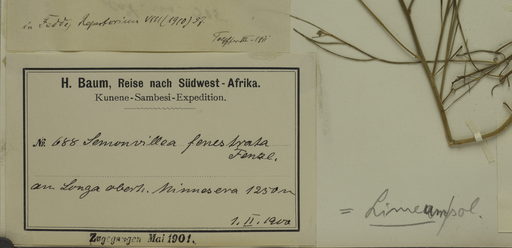 in Fedde, Repertorium VIII (1910) 57.
H. Baum, Reise nach Südwest-Afrika.
Kunene-Sambesi-Expedition.
№. 688 Semonvillea fenestrata
Fenzl.
am Longa oberh. Minnesera 1250 m
1. II. 1900
Zugegangen Mai 1901.
= Limeum